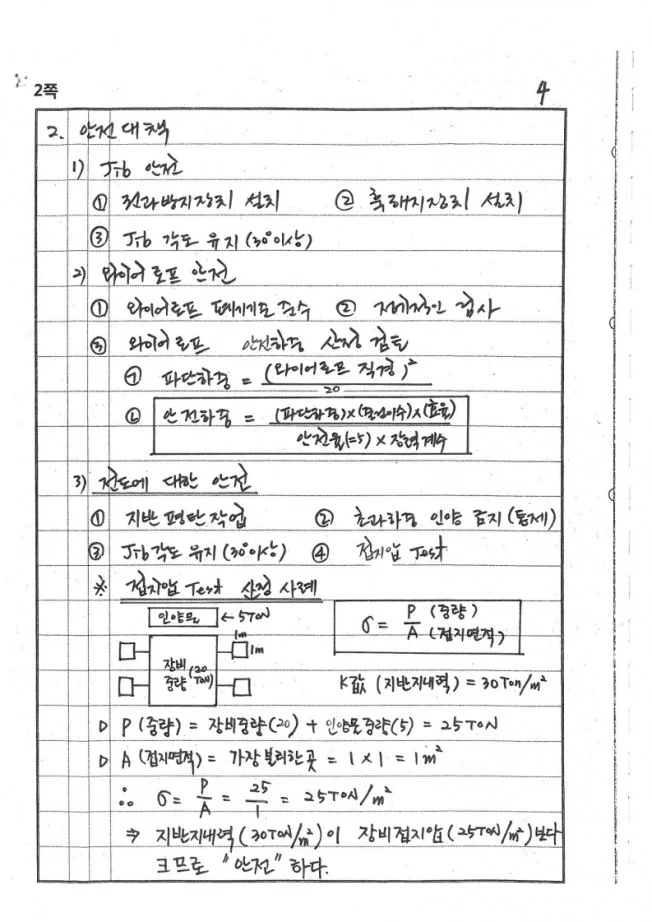 2쪽
4
2. 안전대책
1) Jib 안전
① 권과방지장치 설치 ② 훅해지장치 설치
③ Jib 각도 유지 (30°이상)
2) 와이어로프 안전
① 와이어로프 폐기기준 준수 ② 정기적인 검사
③ 와이어로프 안전하중 산정 검토
㉠ 파단하중 = (와이어로프 직경)² / 20
㉡ 안전하중 = (파단하중)×( )×(효율) / 안전율(=5) × 장력계수
3) 전도에 대한 안전
① 지반 평탄 작업 ② 초과하중 인양 금지 (통제)
③ Jib각도 유지 (30°이상) ④ 접지압 Test
※ 접지압 Test 산정 사례
인양물 ← 5TON
σ = P (중량) / A (접지면적)
1m
1m
장비중량 (20TON)
K값 (지반지내력) = 30Ton/m²
▷ P (중량) = 장비중량(20) + 인양물중량(5) = 25TON
▷ A (접지면적) = 가장불리한곳 = 1 × 1 = 1m²
∴ σ = P/A = 25/1 = 25TON/m²
⇒ 지반지내력 (30TON/m²)이 장비접지압(25TON/m²)보다
크므로 "안전"하다.